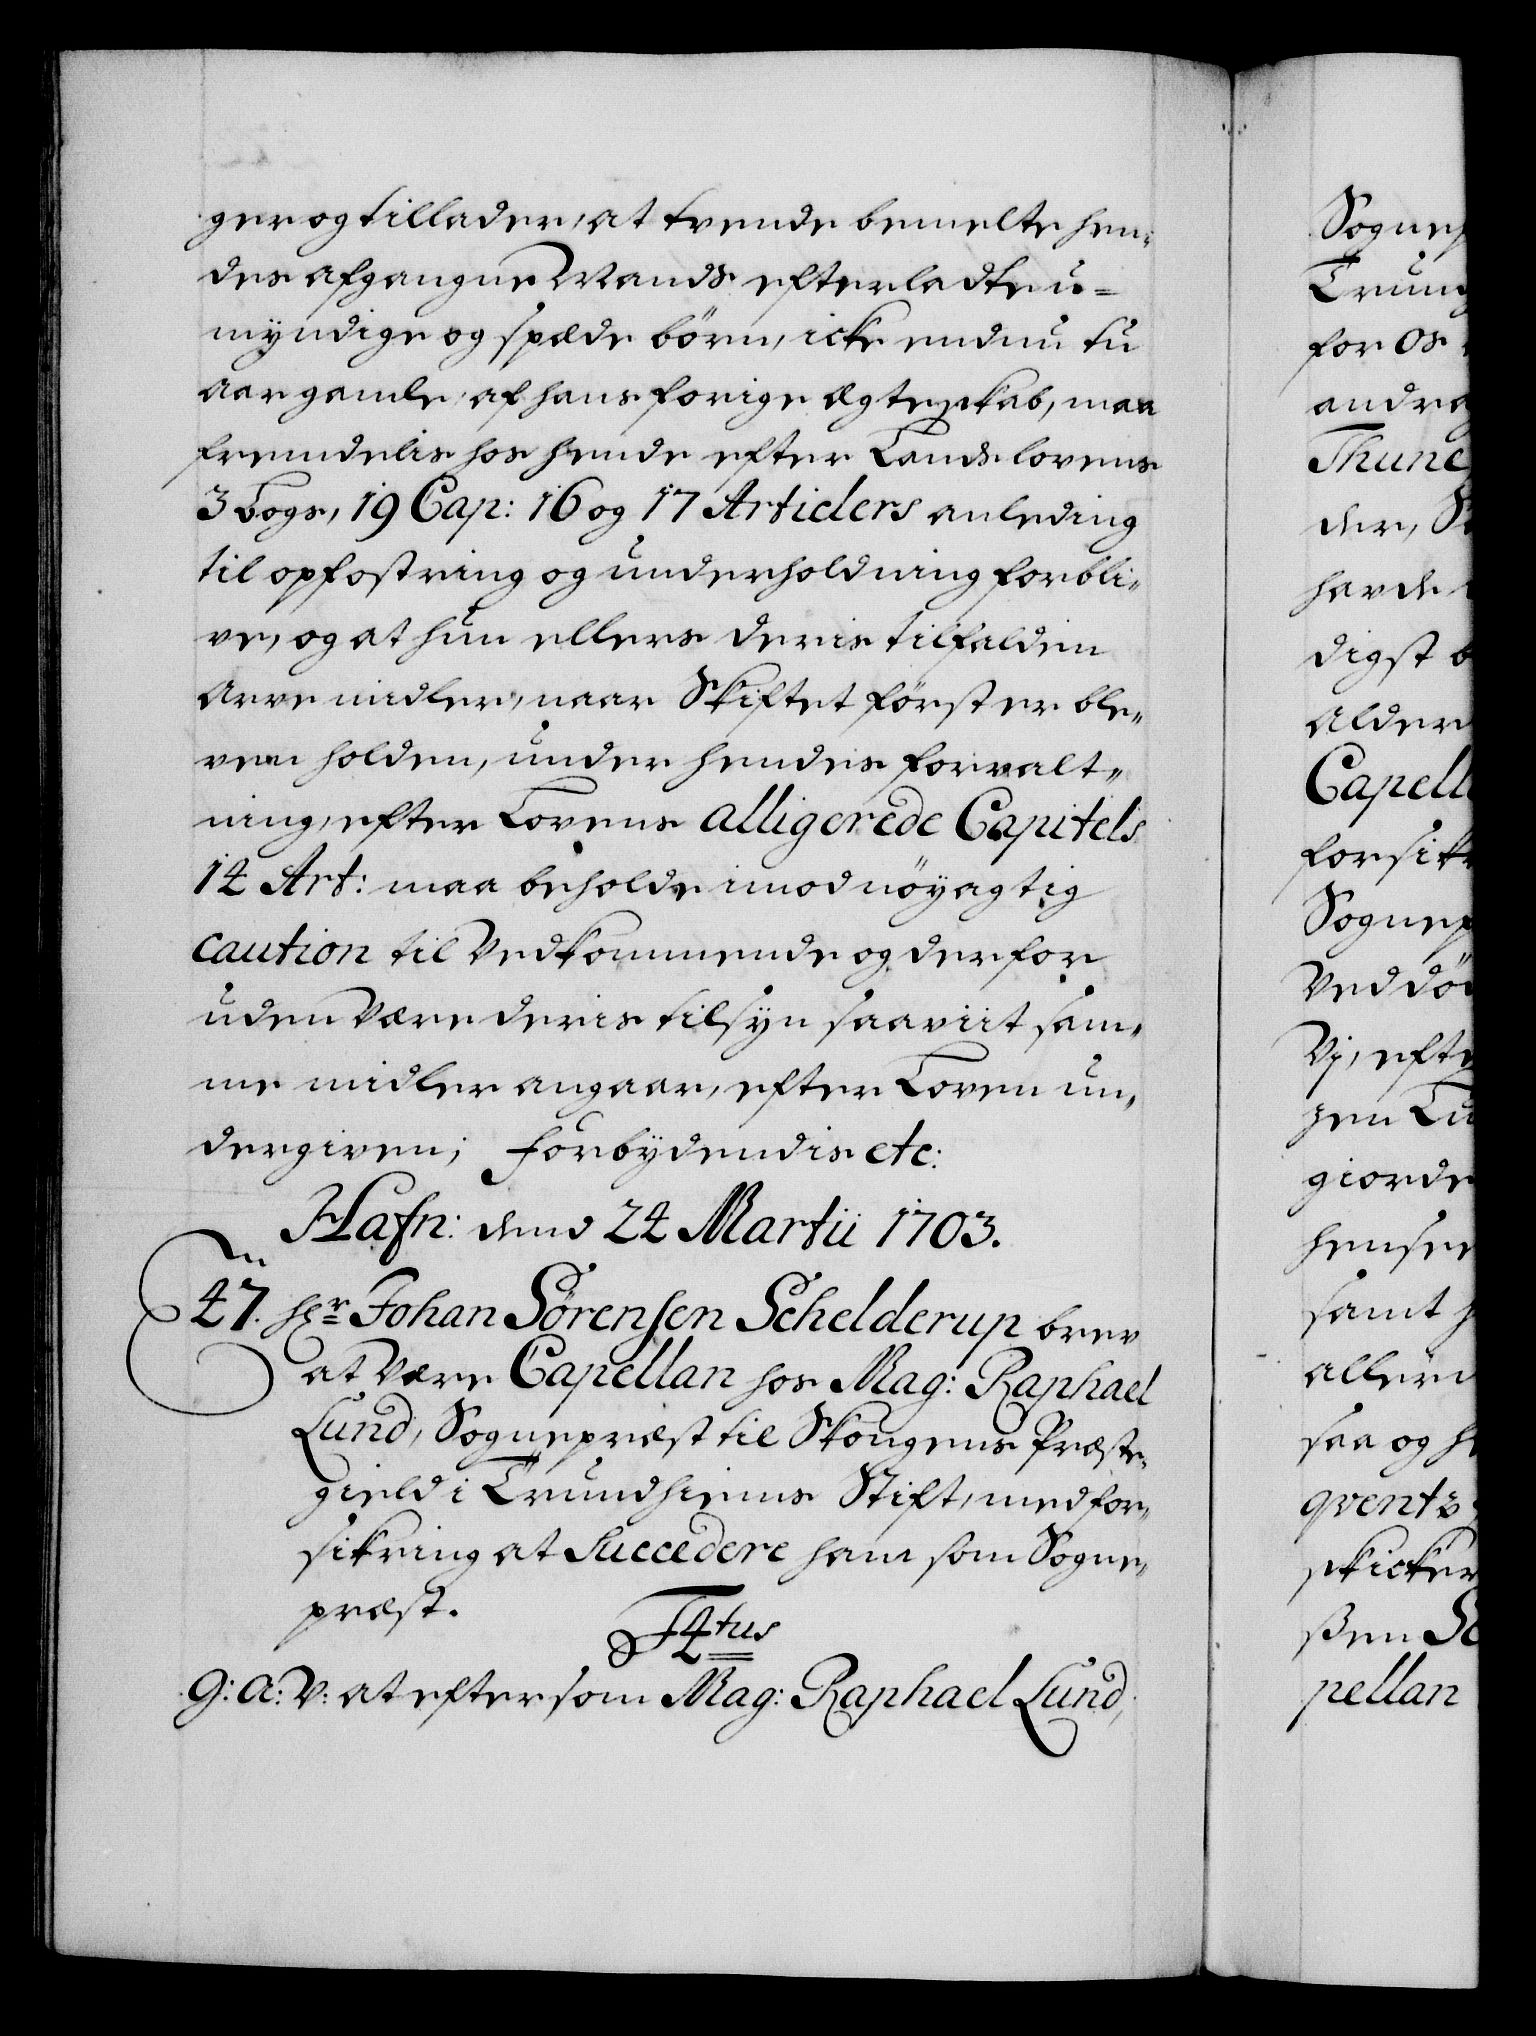 ger og tillader, at tvende bemelte hen-
des afgangne Mands efterladte u-
myndige og spæde börn, icke endnu tu
Aar gamle, af hans forige Ægteskab, maa
fremdelis hos hende efter Landslovens
3 bogs, 19 Cap: 16 og 17 Articlers anleding
til opfostring og underholdning forbli-
ve, og at hun ellers deris tilfalden
Arve midler, naar Skiftet först er ble-
ven holden, under hendes forvalt-
ning, efter Lovens alligerede Capitels
14 Art: maa beholde imod nöyagtig
caution til Vedkommende og derfor
uden Være deris tilsyn saaviit sam-
me midler angaar, efter Loven un-
dergiven; forbydendis etc:
Hafn: dend 24 Martii 1703.
47. Hr Johan Sörensen Schelderup brev
at Være Capellan hos Mag: Raphael
Lund, Sognepræst til Skongens Præste-
gield i Trundhiems Stift, med for-
sikring at Succedere ham som Sogne-
præst.
F4tus
G: A: V: at eftersom Mag: Raphael Lund,
Sognep
Trund
for os
andra
Thune
der, S
havde
digst b
Alder
Capell
forsik
Sognep
Ved dö
Vj, efte
gen Lu
giorde
hensee
samt
allern
saa og h
qventz
skicker
ßen Sc
pellan